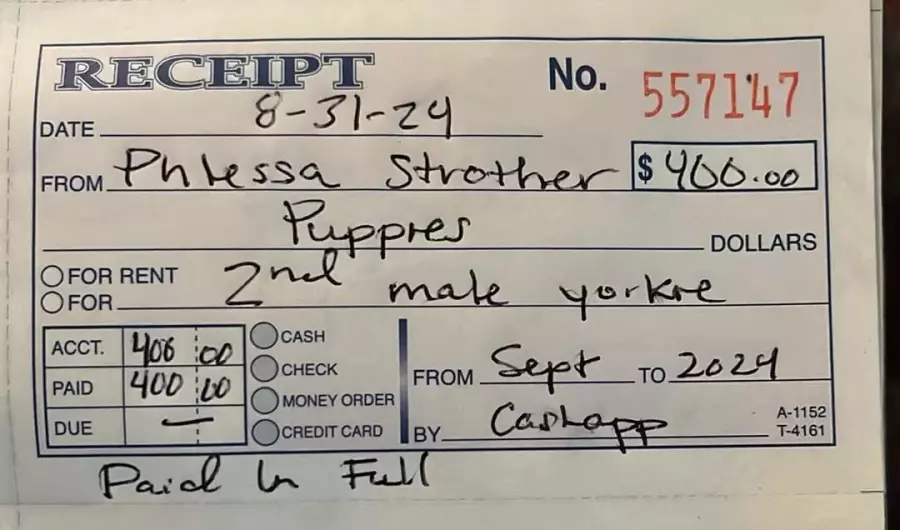 RECEIPT No. 557147
DATE 8-31-24
FROM Phlessa Strother $ 400.00
Puppies DOLLARS
FOR RENT
FOR 2nd male yorkie
ACCT. 400 00
PAID 400 00
DUE —
CASH
CHECK
MONEY ORDER
CREDIT CARD
FROM Sept TO 2024
BY Cashapp
A-1152
T-4161
Paid In Full